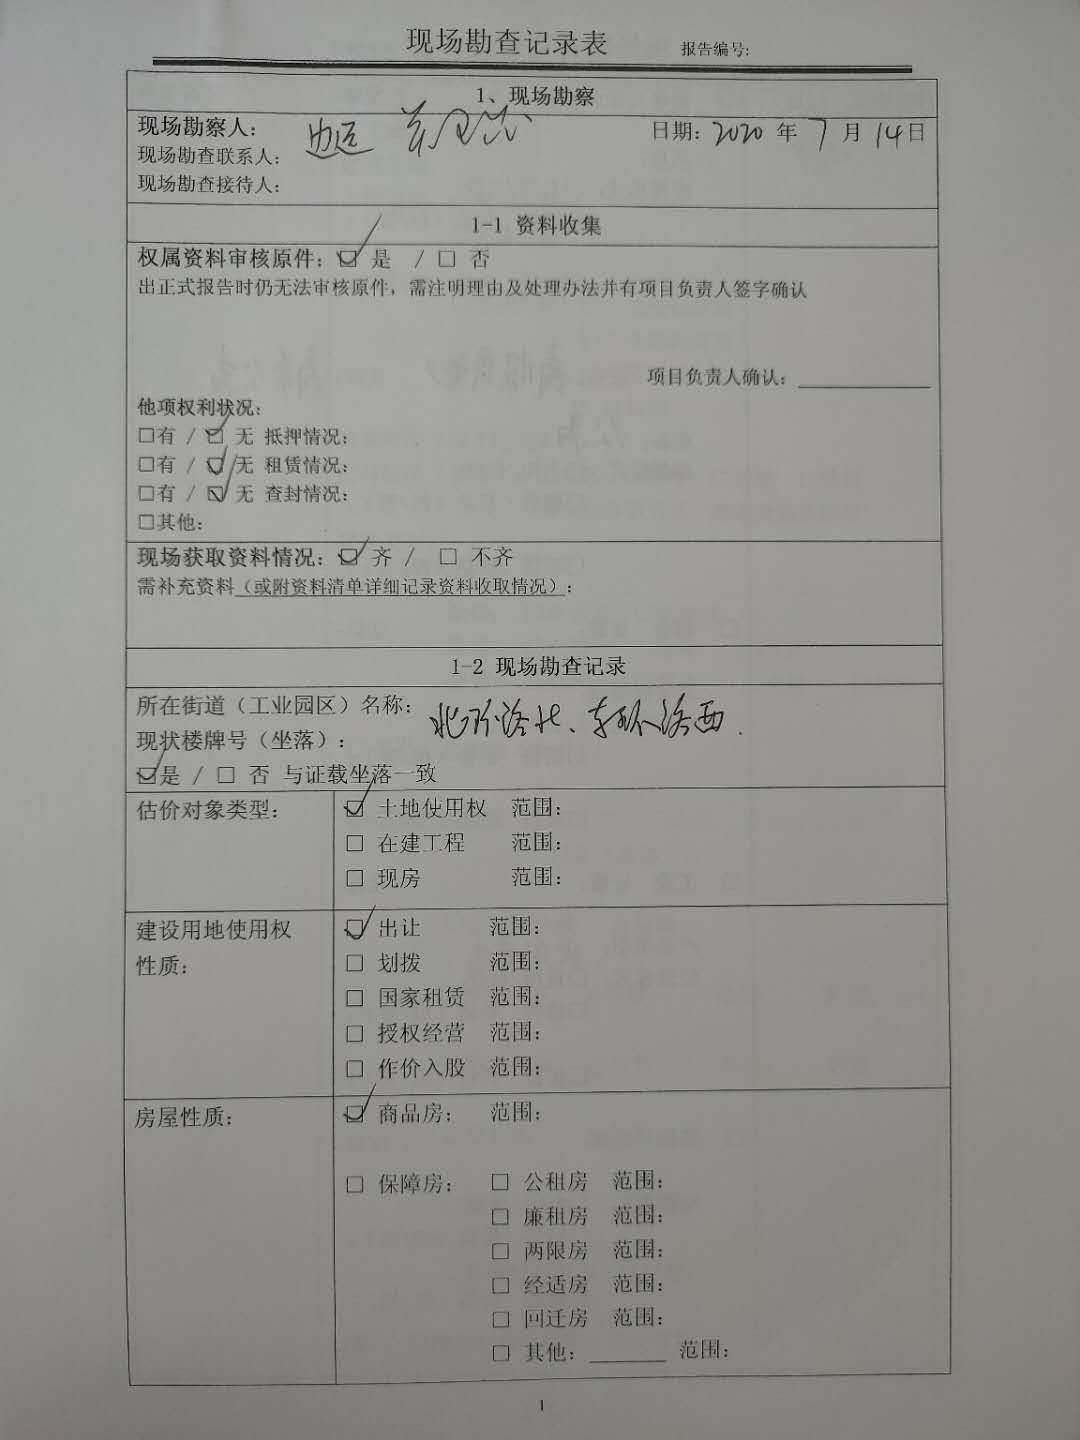 现场勘查记录表 报告编号:
1、现场勘察
现场勘察人: 日期: 2020 年 7 月 14日
现场勘查联系人:
现场勘查接待人:
1-1 资料收集
权属资料审核原件: ☑ 是 / □ 否
出正式报告时仍无法审核原件, 需注明理由及处理办法并有项目负责人签字确认
项目负责人确认: ________
他项权利状况:
□有 / ☑ 无 抵押情况:
□有 / ☑ 无 租赁情况:
□有 / ☑ 无 查封情况:
□其他:
现场获取资料情况: ☑ 齐 / □ 不齐
需补充资料(或附资料清单详细记录资料收取情况):
1-2 现场勘查记录
所在街道（工业园区）名称: 北环路北、东环路西.
现状楼牌号（坐落）:
☑是 / □ 否 与证载坐落一致
估价对象类型: ☑ 土地使用权 范围:
□ 在建工程 范围:
□ 现房 范围:
建设用地使用权性质: ☑ 出让 范围:
□ 划拨 范围:
□ 国家租赁 范围:
□ 授权经营 范围:
□ 作价入股 范围:
房屋性质: ☑ 商品房: 范围:
□ 保障房: □ 公租房 范围:
□ 廉租房 范围:
□ 两限房 范围:
□ 经适房 范围:
□ 回迁房 范围:
□ 其他: ______ 范围:
1